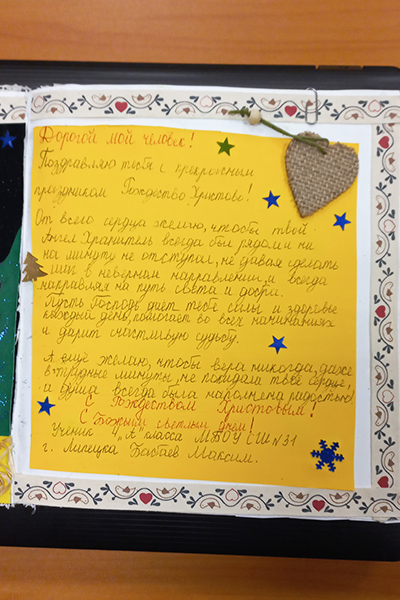 Дорогой мой человек!
Поздравляю тебя с прекрасным
праздником Рождество Христово!
От всего сердца желаю, чтобы твой
Ангел Хранитель всегда был рядом и ни
на минуту не отступал, не давая сделать
шаг в неверном направлении, и всегда
направлял на путь света и добра.
Пусть Господь дает тебе силы и здоровье
каждый день, помогает во всех начинаниях
и дарит счастливую судьбу.
А ещё желаю, чтобы вера никогда, даже
в трудные минуты, не покидала твое сердце,
а душа всегда была наполнена радостью
С Рождеством Христовым!
С Божьим светлым днем!
Ученик "А класса МБОУ СШ №31
г. Липецка Бабаев Максим.